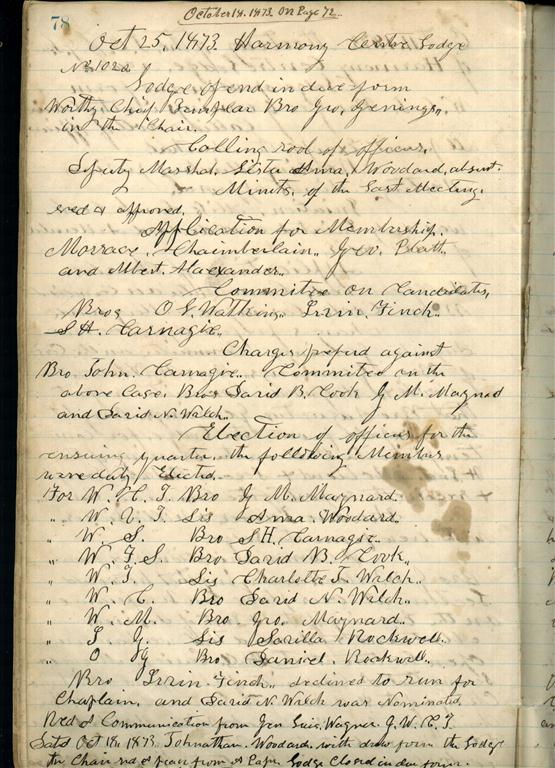 October 18. 1873. On Page 72.
78
Oct 25, 1873. Harmony Centre Lodge
No 1022
Lodge opend in due form
Worthy Chief Templar Bro Geo, Jenings,
in the Chair.
Calling rool of officers.
Deputy Marshal. Sista Ama, Woodard, absent.
Minits, of the Last Meeting.
red & approved.
Application for Membership.
Chaimberlain,, Geo. Platt.
and Albert. Alaexander,.
Committee on Candidates,
Bros O S. Watkins,, Irvin. Finch.
S H. Carnagie,.
Charges prefered against
Bro John. Carnagie.. Committee on the
above Case. Bros David B. Cook G M. Maynard
and David N. Walch..
Election of officers for the
ensuing quarter. the following Members
were duly Elected.
For W. C. T. Bro G M. Maynard.
,, W. V. T. Sis Ama. Woodard..
,, W. S. Bro S H. Carnagie..
,, W. F S. Bro. David B. Cook,.
,, W. T. Sis Charlotte T. Walch..
,, W. C. Bro David N. Walch..
,, W. M. Bro. Geo. Maynard..
,, I. G. Sis Sarilla Rockwell..
,, O G Bro Daniel. Rockwell..
Bro Irvin. Finch,, declined to run for
Chaplain, and David N. Walch was Nominated.
Red a Communication from Wagner. G. W. C. T.
Datd Oct 18th 1873. Johnathan. Woodard. with drew form the Lodge
the Chair red a from a Paper. Lodge Closed in due form.